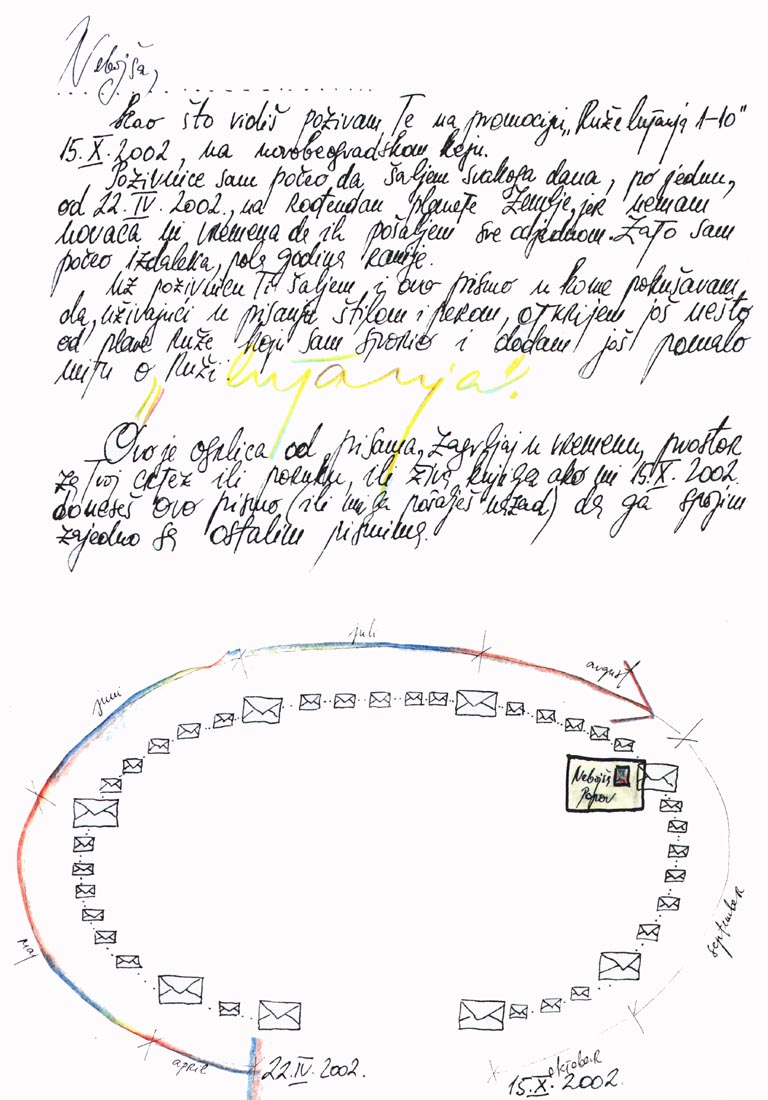 Nebojša,
Kao što vidiš pozivam Te na promociju „Ruže lutanja 1-10"
15.X.2002, na novobeogradskom keju.
Pozivnice sam počeo da šaljem svakoga dana, po jednu,
od 22.IV.2002., na Rođendan planete Zemlje, jer nemam
novaca ni vremena da ih pošaljem sve odjednom. Zato sam
počeo izdaleka, pola godine ranije.
Uz pozivnicu Ti šaljem i ovo pismo u kome pokušavam
da, uživajući u pisanju štilom i perom, otkrijem još nešto
od plave Ruže koju sam stvorio i dodam još pomalo
mitu o Ruži „lutanja".
Ovo je ogrlica od pisama, zagrljaj u vremenu, prostor
za Tvoj crtež ili poruku, ili živa knjiga ako mi 15.X.2002.
doneseš ovo pismo (ili mi ga pošalješ nazad) da ga spojim
zajedno sa ostalim pismima.
juli
avgust
juni
Nebojša
Popov
septembar
maj
april
22.IV.2002.
oktobar
15.X.2002.